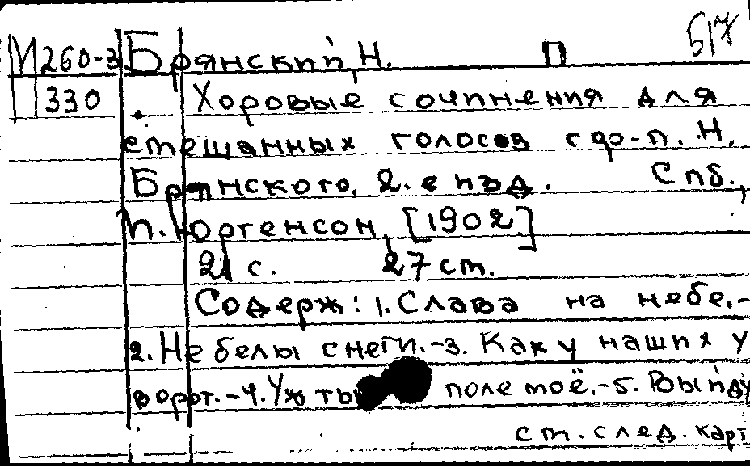 517
М 260-3 Брянский, Н. П
П 330 Хоровые сочинения для
смешанных голосов с фо-п. Н.
Брянского, 2-е изд. Спб.,
П. Юргенсон, [1902]
21 с. 27 см.
Содерж: 1. Слава на небе.-
2. Не белы снеги.-3. Как у наших у
ворот.-4. Уж ты поле моё.-5. Выйду
см. след. карт